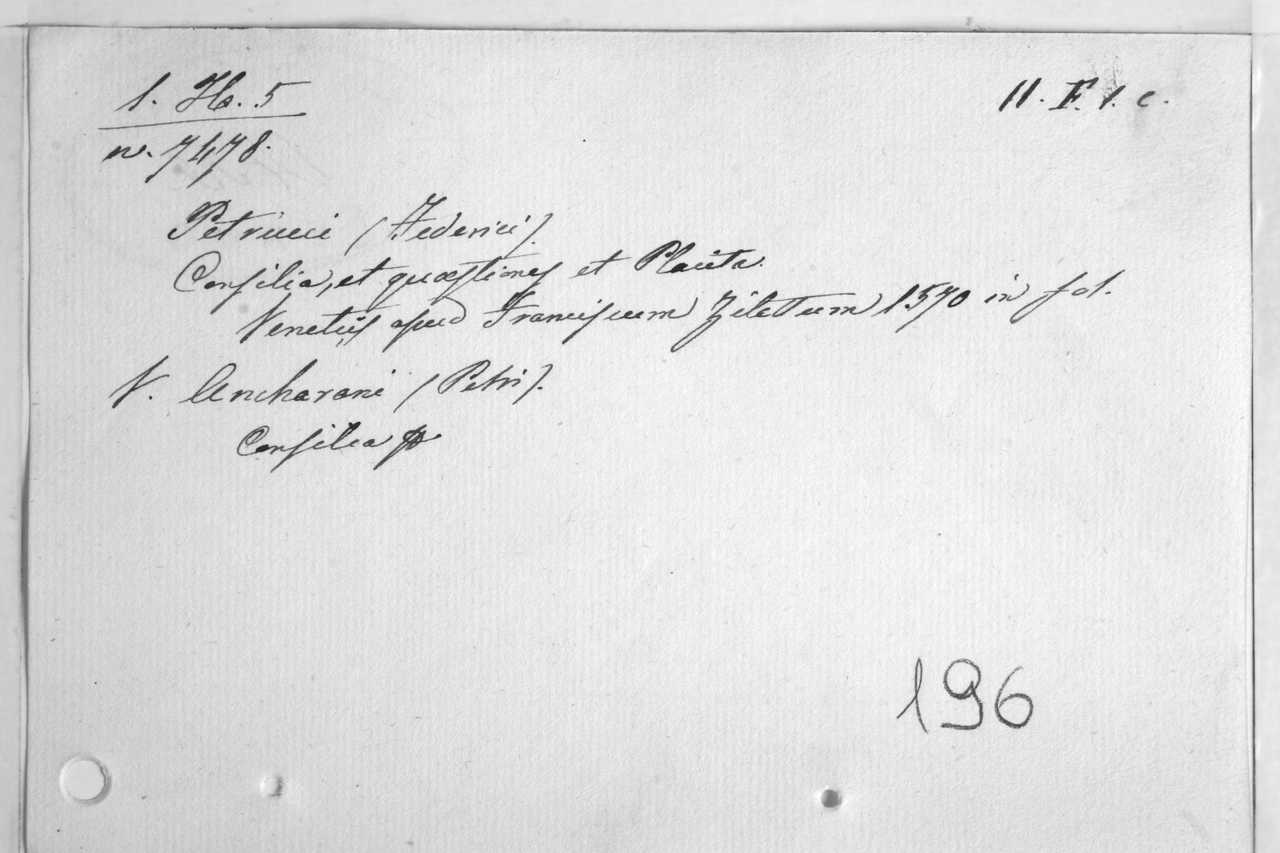 1. Hb. 5
11. F. 1. c.
n. 7478.
Petrucci (Federici).
Consilia, et quæstiones et Placita.
Venetiis apud Franciscum Zilettum 1570 in fol.
V. Ancharani (Petri).
Consilia
196